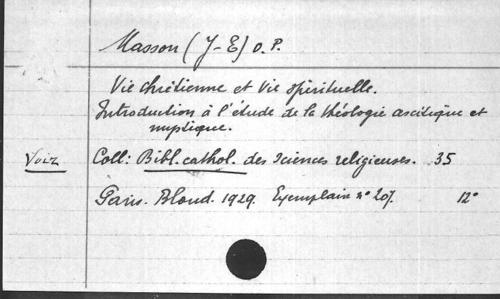 Masson (J-E) O.P.
Vie chrétienne et Vie spirituelle.
Introduction à l'étude de la théologie ascétique et
mystique.
Voir Coll: Bibl. cathol. des sciences religieuses. 35
Paris. Bloud. 1929. Exemplaire n° 207. 12°